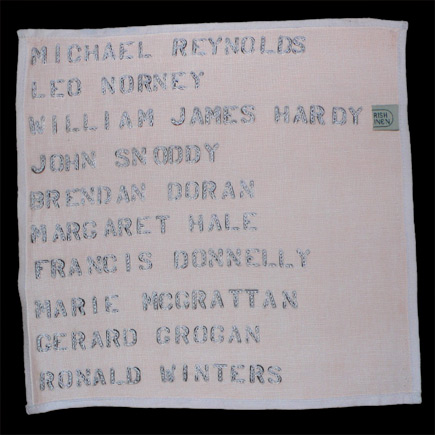 MICHAEL REYNOLDS
LEO NORNEY
WILLIAM JAMES HARDY
JOHN SNODDY
BRENDAN DORAN
MARGARET HALE
FRANCIS DONNELLY
MARIE MCGRATTAN
GERARD GROGAN
RONALD WINTERS
RISH
INEN